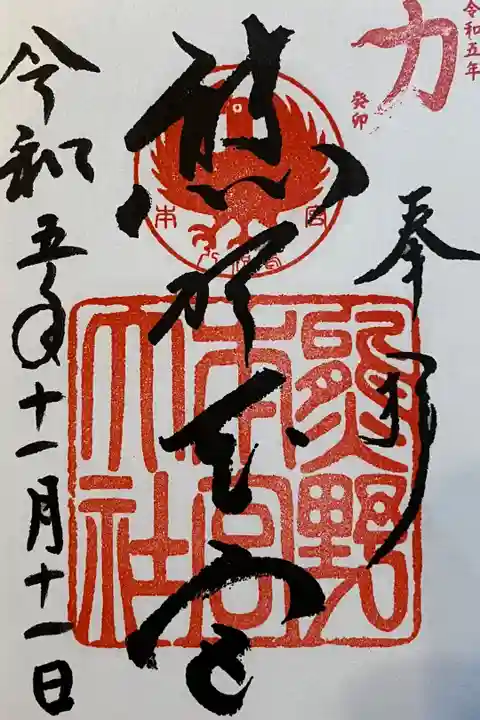 令和五年
癸卯
力
奉拝
熊野本宮
熊野
本宮
大社
本宮
令和五年十一月十一日